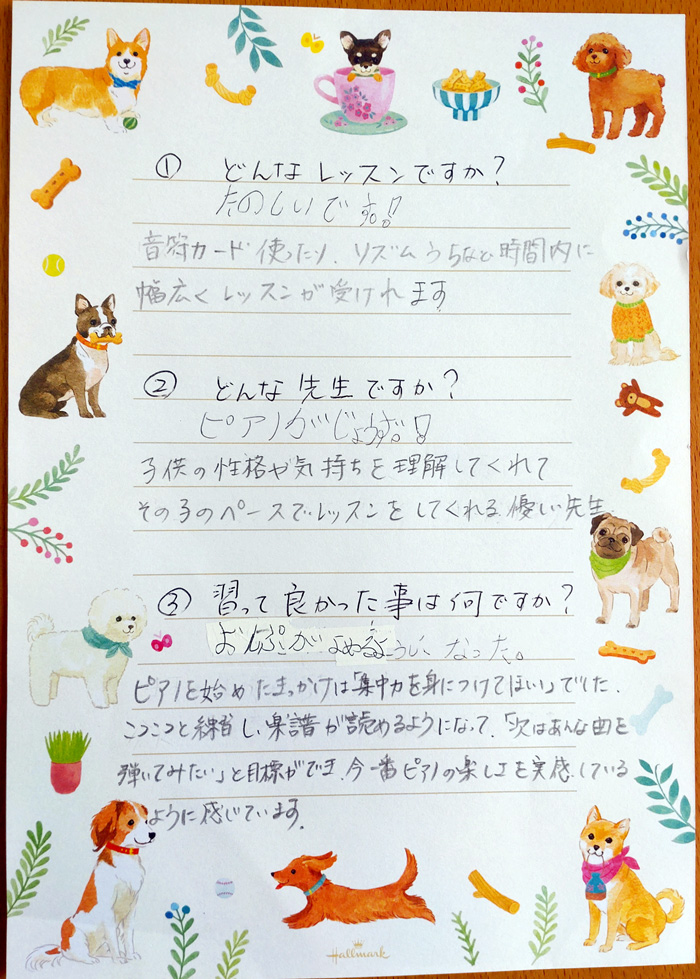 ① どんなレッスンですか？
たのしいです。！
音符カード使ったり、リズムうちなど時間内に
幅広くレッスンが受けれます
② どんな先生ですか？
ピアノがじょうず。！
子供の性格や気持ちを理解してくれて
その子のペースでレッスンをしてくれる優しい先生
③ 習って良かった事は何ですか？
おんぷがよめるようになった。
ピアノを始めたきっかけは「集中力を身につけてほしい」でした、
こつこつと練習し、楽譜が読めるようになって、「次はあんな曲を
弾いてみたい」と目標ができ、今一番ピアノの楽しさを実感している
ように感じています。
Hallmark